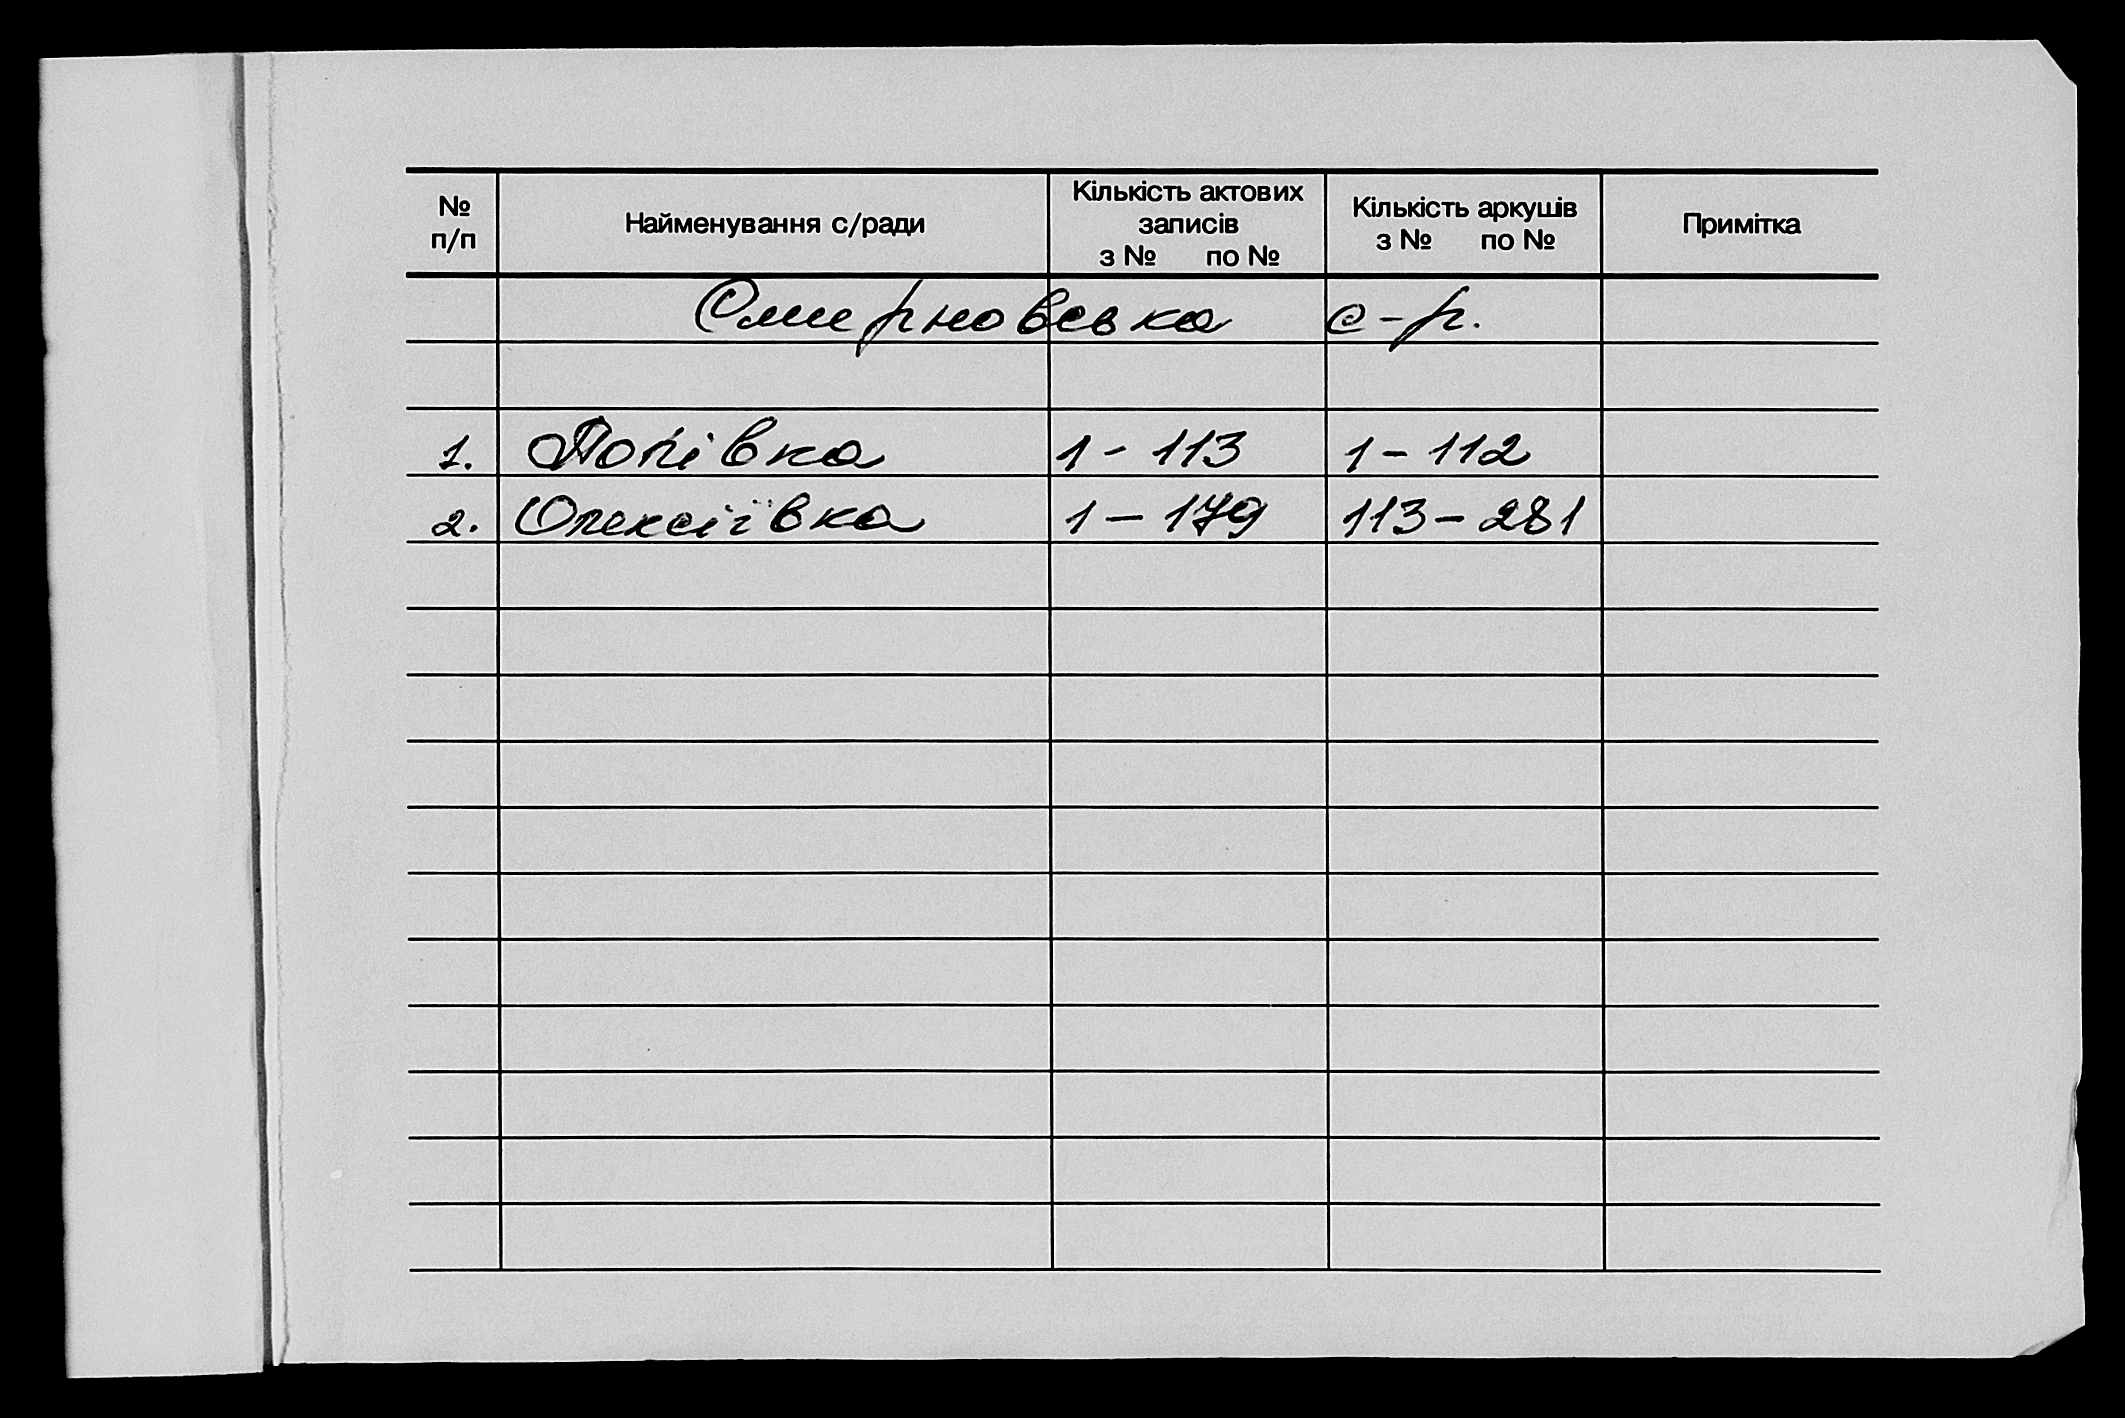 № п/п Найменування с/ради Кількість актових записів з № по № Кількість аркушів з № по № Примітка
Смирновська с-р.
1. Попівка 1 - 113 1 - 112
2. Олексіївка 1 - 179 113 - 281